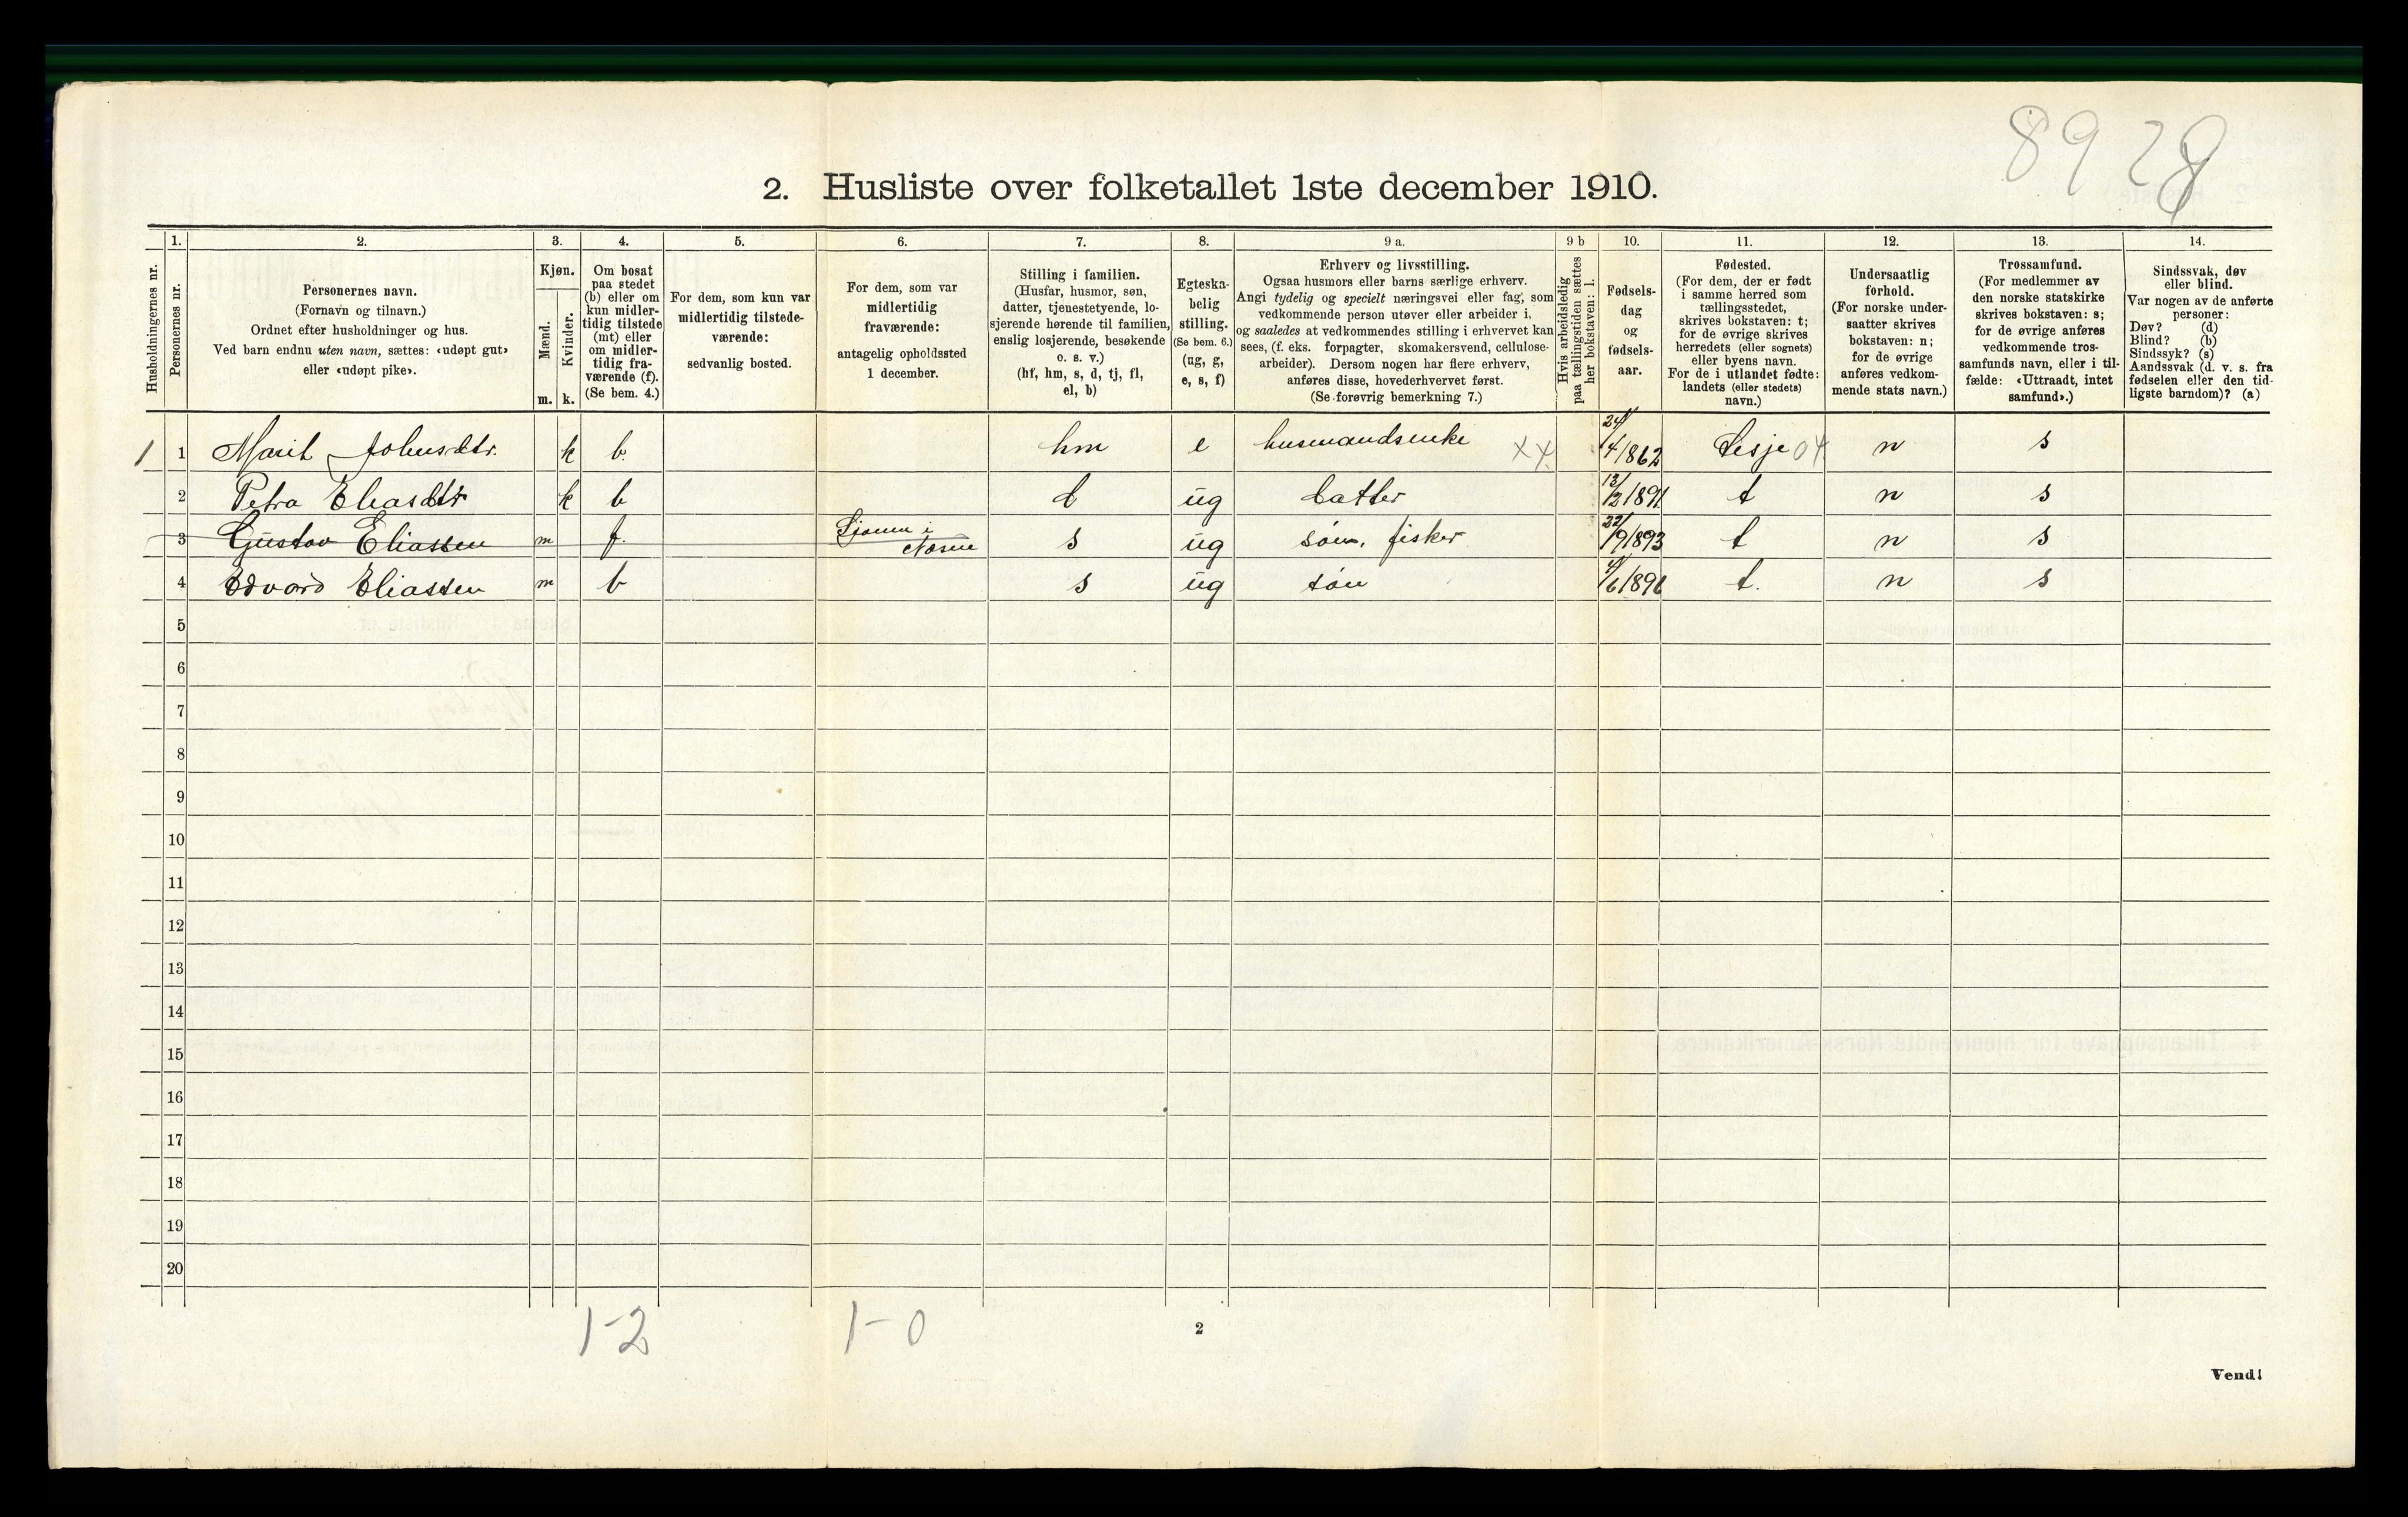 8928
2. Husliste over folketallet 1ste december 1910.
Husholdningernes nr.
1.
Personernes nr.
2.
Personernes navn.
(Fornavn og tilnavn.)
Ordnet efter husholdninger og hus.
Ved barn endnu uten navn, sættes: «udøpt gut»
eller «udøpt pike».
3.
Kjøn.
Mænd.
Kvinder.
m. k.
4.
Om bosat
paa stedet
(b) eller om
kun midler-
tidig tilstede
(mt) eller
om midler-
tidig fra-
værende (f).
(Se bem. 4.)
5.
For dem, som kun var
midlertidig tilstede-
værende:
sedvanlig bosted.
6.
For dem, som var
midlertidig
fraværende:
antagelig opholdssted
1 december.
7.
Stilling i familien.
(Husfar, husmor, søn,
datter, tjenestetyende, lo-
sjerende hørende til familien,
enslig losjerende, besøkende
o. s. v.)
(hf, hm, s, d, tj, fl,
el, b)
8.
Egteska-
belig
stilling.
(Se bem. 6.)
(ug, g,
e, s, f)
9 a.
Erhverv og livsstilling.
Ogsaa husmors eller barns særlige erhverv.
Angi tydelig og specielt næringsvei eller fag, som
vedkommende person utøver eller arbeider i,
og saaledes at vedkommendes stilling i erhvervet kan
sees, (f. eks. forpagter, skomakersvend, cellulose-
arbeider). Dersom nogen har flere erhverv,
anføres disse, hovederhvervet først.
(Se forøvrig bemerkning 7.)
9 b
Hvis arbeidsledig
paa tællingstiden sættes
her bokstaven: l.
10.
Fødsels-
dag
og
fødsels-
aar.
11.
Fødested.
(For dem, der er født
i samme herred som
tællingsstedet,
skrives bokstaven: t;
for de øvrige skrives
herredets (eller sognets)
eller byens navn.
For de i utlandet fødte:
landets (eller stedets)
navn.)
12.
Undersaatlig
forhold.
(For norske under-
saatter skrives
bokstaven: n;
for de øvrige
anføres vedkom-
mende stats navn.)
13.
Trossamfund.
(For medlemmer av
den norske statskirke
skrives bokstaven: s;
for de øvrige anføres
vedkommende tros-
samfunds navn, eller i til-
fælde: «Uttraadt, intet
samfund».)
14.
Sindssvak, døv
eller blind.
Var nogen av de anførte
personer:
Døv? (d)
Blind? (b)
Sindssyk? (s)
Aandssvak (d. v. s. fra
fødselen eller den tid-
ligste barndom)? (a)
1 1 Marit Johnsdtr. k b. hm e husmandsenke XX. 24/4 1862 Lesje 04 n s
2 Petra Eliasdtr k b d ug datter 13/2 1891 t n s
3 Gustav Eliassen m f. i Næsne s ug søn, fisker 22/9 1893 t n s
4 Edvard Eliassen m b s ug søn 4/6 1896 t. n s
5
6
7
8
9
10
11
12
13
14
15
16
17
18
19
20
1-2 1-0
2
Vend!